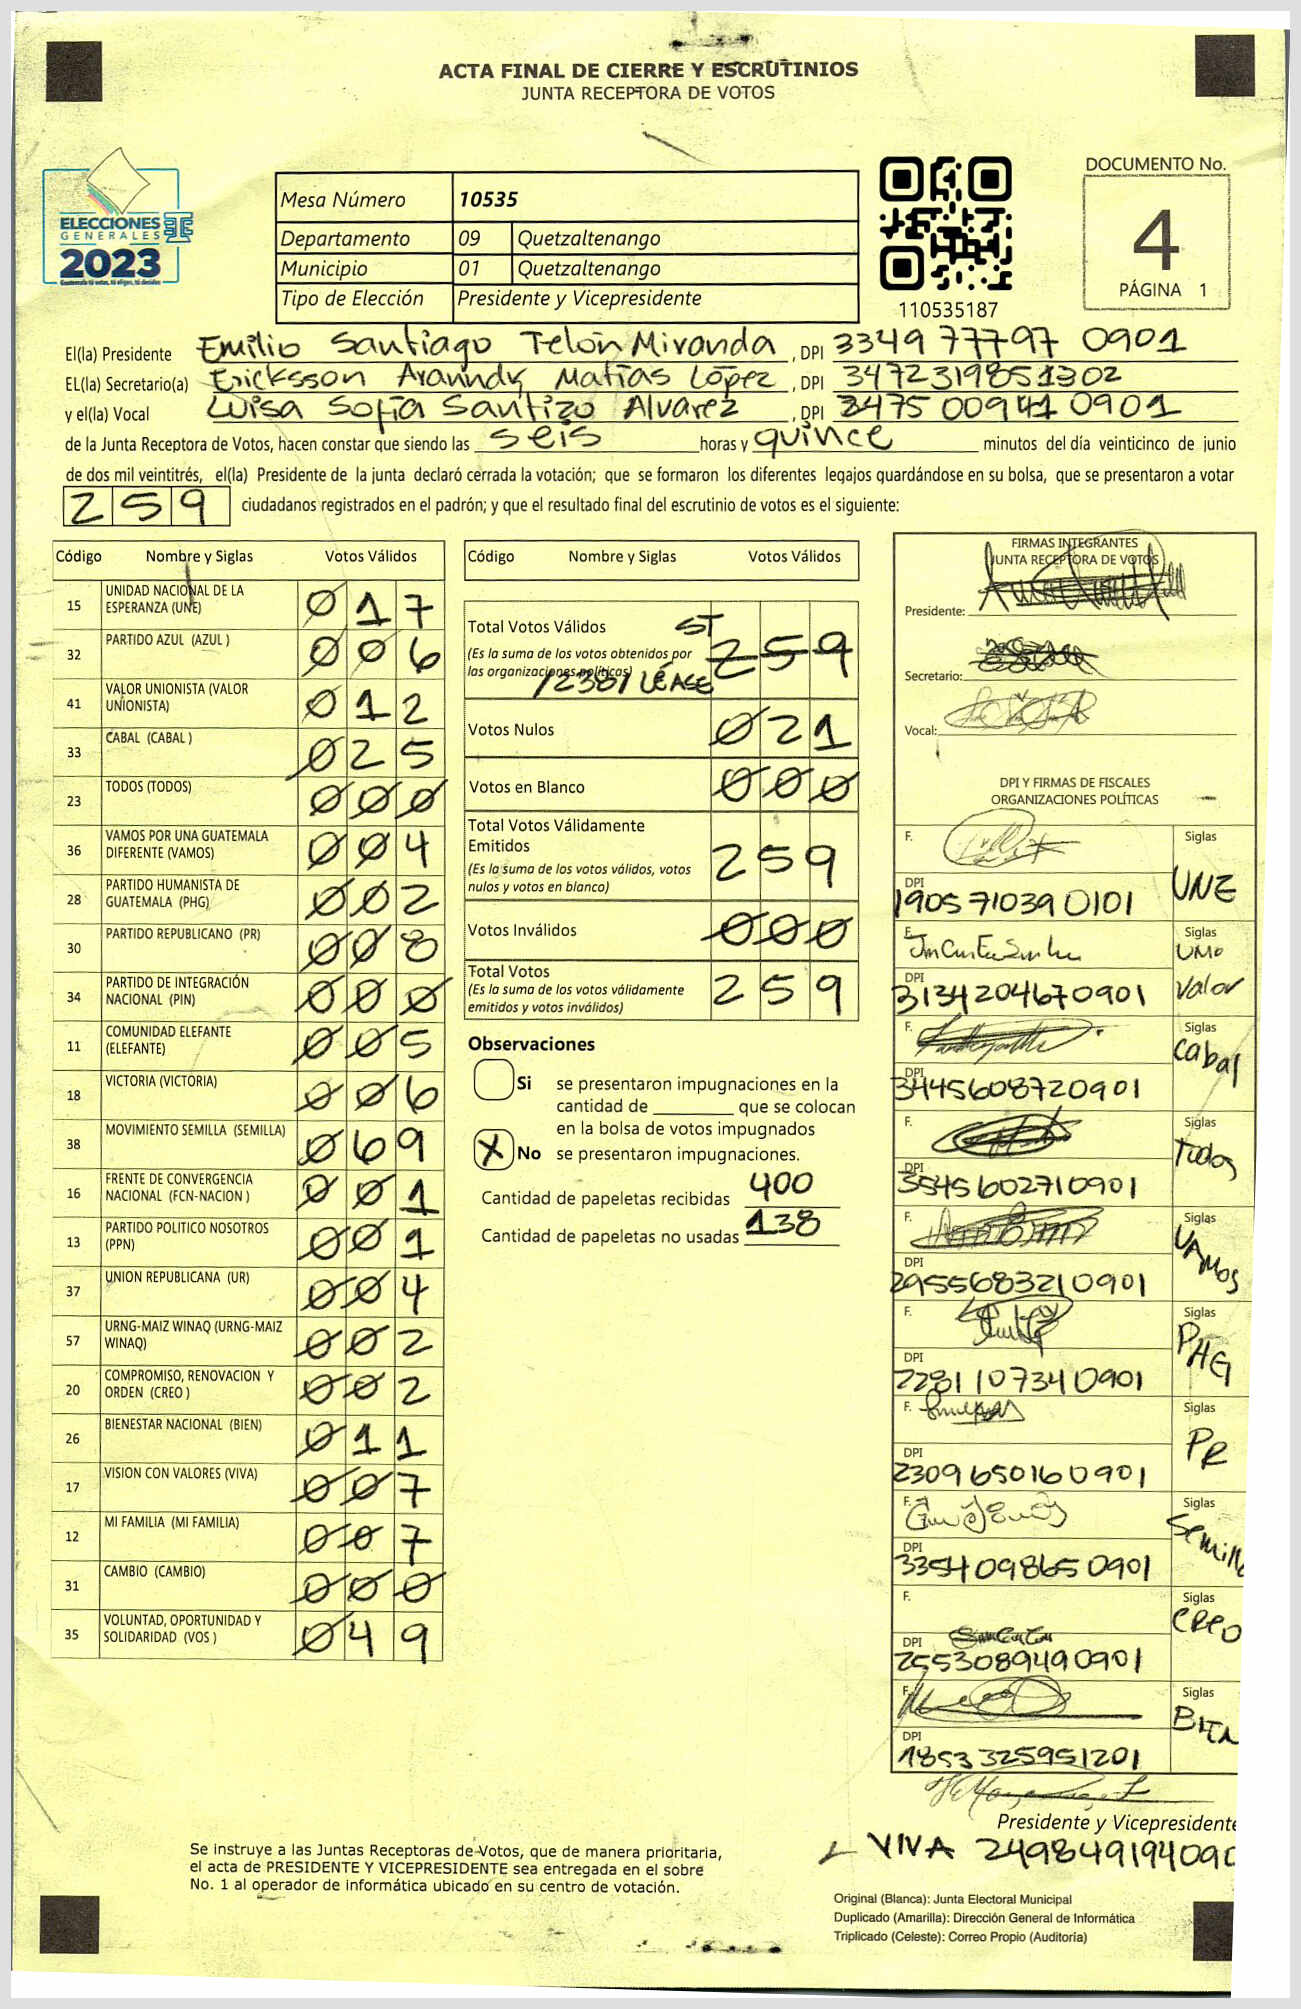 ACTA FINAL DE CIERRE Y ESCRUTINIOS
JUNTA RECEPTORA DE VOTOS
ELECCIONES
GENERALES
2023
Mesa Número 10535
Departamento 09 Quetzaltenango
Municipio 01 Quetzaltenango
Tipo de Elección Presidente y Vicepresidente
110535187
DOCUMENTO No.
4
PÁGINA 1
El(la) Presidente Emilio Santiago Telón Miranda, DPI 3349 77797 0901
EL(la) Secretario(a) Ericksson Aranndy Matías López, DPI 3472319851302
y el(la) Vocal Luisa Sofía Santizo Alvarez, DPI 3475 00941 0901
de la Junta Receptora de Votos, hacen constar que siendo las seis horas y quince minutos del día veinticinco de junio
de dos mil veintitrés, el(la) Presidente de la junta declaró cerrada la votación; que se formaron los diferentes legajos guardándose en su bolsa, que se presentaron a votar
259 ciudadanos registrados en el padrón; y que el resultado final del escrutinio de votos es el siguiente:
Código Nombre y Siglas Votos Válidos
15 UNIDAD NACIONAL DE LA ESPERANZA (UNE) 017
32 PARTIDO AZUL (AZUL ) 006
41 VALOR UNIONISTA (VALOR UNIONISTA) 012
33 CABAL (CABAL ) 025
23 TODOS (TODOS) 000
36 VAMOS POR UNA GUATEMALA DIFERENTE (VAMOS) 004
28 PARTIDO HUMANISTA DE GUATEMALA (PHG) 002
30 PARTIDO REPUBLICANO (PR) 008
34 PARTIDO DE INTEGRACIÓN NACIONAL (PIN) 000
11 COMUNIDAD ELEFANTE (ELEFANTE) 005
18 VICTORIA (VICTORIA) 006
38 MOVIMIENTO SEMILLA (SEMILLA) 069
16 FRENTE DE CONVERGENCIA NACIONAL (FCN-NACION ) 001
13 PARTIDO POLITICO NOSOTROS (PPN) 001
37 UNION REPUBLICANA (UR) 004
57 URNG-MAIZ WINAQ (URNG-MAIZ WINAQ) 002
20 COMPROMISO, RENOVACION Y ORDEN (CREO ) 002
26 BIENESTAR NACIONAL (BIEN) 011
17 VISION CON VALORES (VIVA) 007
12 MI FAMILIA (MI FAMILIA) 007
31 CAMBIO (CAMBIO) 000
35 VOLUNTAD, OPORTUNIDAD Y SOLIDARIDAD (VOS ) 049
Código Nombre y Siglas Votos Válidos
Total Votos Válidos ST 259
(Es la suma de los votos obtenidos por
las organizaciones políticas)
/238/ LÉASE
Votos Nulos 021
Votos en Blanco 000
Total Votos Válidamente
Emitidos 259
(Es la suma de los votos válidos, votos
nulos y votos en blanco)
Votos Inválidos 000
Total Votos 259
(Es la suma de los votos válidamente
emitidos y votos inválidos)
Observaciones
Si se presentaron impugnaciones en la
cantidad de ________ que se colocan
en la bolsa de votos impugnados
X No se presentaron impugnaciones.
Cantidad de papeletas recibidas 400
Cantidad de papeletas no usadas 138
FIRMAS INTEGRANTES
JUNTA RECEPTORA DE VOTOS
Presidente:
Secretario:
Vocal:
DPI Y FIRMAS DE FISCALES
ORGANIZACIONES POLÍTICAS
F. Siglas
DPI 1905 71039 0101 UNE
F. Siglas
DPI 3134204670901 UNIO Valor
F. Siglas
DPI 3445608720901 Cabal
F. Siglas
DPI 3545602710901 Todos
F. Siglas
DPI 2955683210901 VAMOS
F. Siglas
DPI 2281107340901 PHG
F. Siglas
DPI 2309650160901 PR
F. Siglas
DPI 3354098650901 Semilla
F. Siglas
DPI 2553089490901 CREO
F. Siglas
DPI 1853325951201 BIEN
Presidente y Vicepresidente
VIVA 249849194090
Se instruye a las Juntas Receptoras de Votos, que de manera prioritaria,
el acta de PRESIDENTE Y VICEPRESIDENTE sea entregada en el sobre
No. 1 al operador de informática ubicado en su centro de votación.
Original (Blanca): Junta Electoral Municipal
Duplicado (Amarilla): Dirección General de Informática
Triplicado (Celeste): Correo Propio (Auditoría)